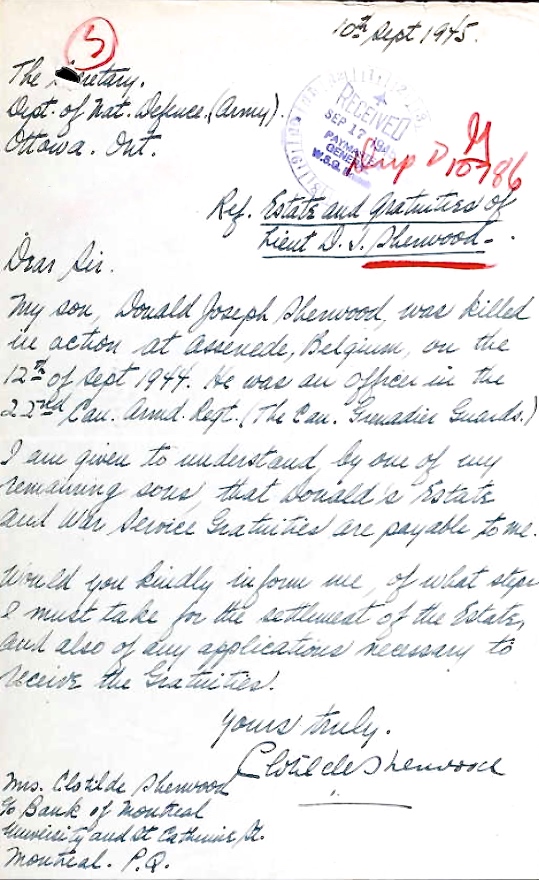 10th Sept 1945.
3
The Secretary.
Dept. of Nat. Defence. (Army).
Ottawa. Ont.
RECEIVED
SEP 17 194
PAYMASTER
GENERAL
W.S.G.
10786
Ref. Estate and Gratuities of
Lieut D. J. Sherwood.
Dear Sir.
My son, Donald Joseph Sherwood, was killed
in action at Assenede, Belgium, on the
12th of Sept 1944. He was an officer in the
22nd Can. Armd. Regt. (The Can. Grenadier Guards.)
I am given to understand by one of my
remaining sons, that Donald's Estate
and War Service Gratuities are payable to me.
Would you kindly inform me, of what steps
I must take for the settlement of the Estate,
and also of any applications necessary to
receive the Gratuities.
Yours truly.
Clotilde Sherwood
Mrs. Clotilde Sherwood
c/o Bank of Montreal
University and St Catherine St.
Montreal. P.Q.